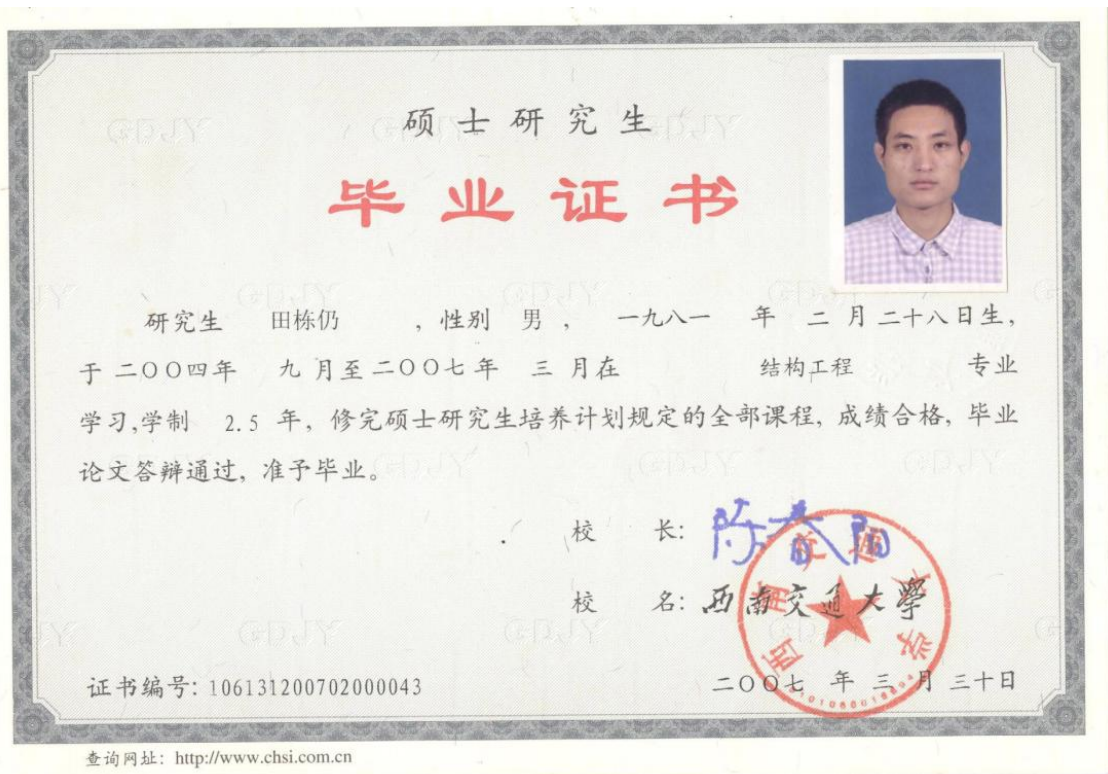 硕士研究生
毕业证书
研究生 田栋仍 ,性别 男 , 一九八一 年 二 月 二十八日生,
于二〇〇四年 九 月至二〇〇七年 三 月在 结构工程 专业
学习,学制 2.5 年, 修完硕士研究生培养计划规定的全部课程, 成绩合格, 毕业
论文答辩通过, 准予毕业。
校 长: 陈春阳
校 名: 西南交通大學
西南交通大学
证书编号: 106131200702000043
二〇〇七 年 三 月 三十日
查询网址: http://www.chsi.com.cn